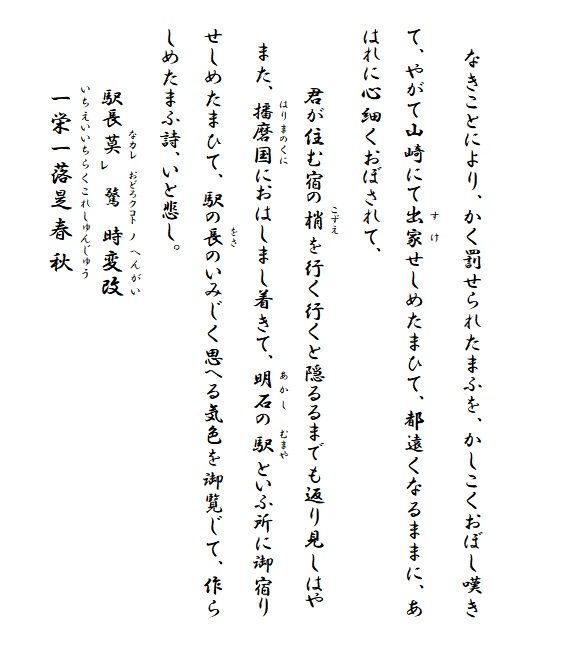 なきことにより、かく罰せられたまふを、かしこくおぼし嘆き
て、やがて山崎にて出家せしめたまひて、都遠くなるままに、あ
はれに心細くおぼされて、
君が住む宿の梢を行く行くと隠るるまでも返り見しはや
また、播磨国におはしまし着きて、明石の駅といふ所に御宿り
せしめたまひて、駅の長のいみじく思へる気色を御覧じて、作ら
しめたまふ詩、いと悲し。
駅長莫レ驚時変改
一栄一落是春秋
すけ
こずえ
はりまのくに
あかし
むまや
をさ
なカレ
おどろクコト
ノ
へんがい
いちえいいちらくこれしゅんじゅう